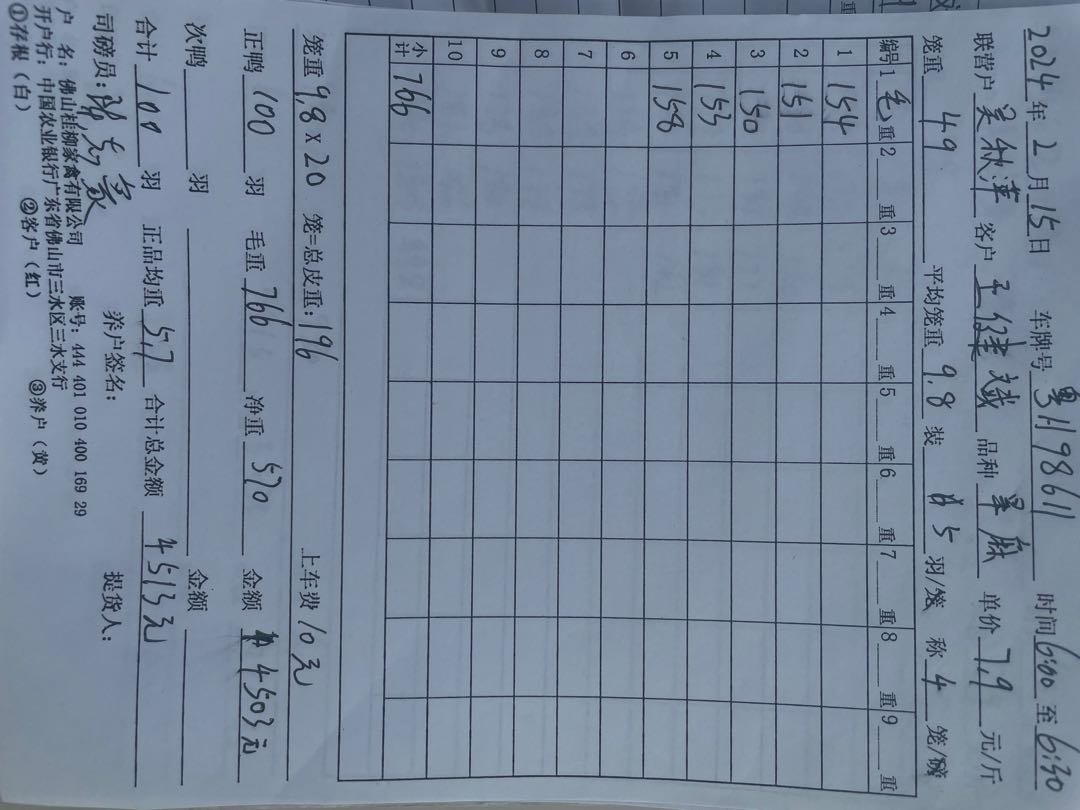 2024年2月15日 车牌号 粤H98611 时间6:00至6:30
联营户 吴秋萍 客户 王健斌 品种 单价7.9元/斤
笼重 49 平均笼重 9.8 装 5 羽/笼 称 4 笼/磅
编号 1 毛 重 2 重 3 重 4 重 5 重 6 重 7 重 8 重 9 重
1 154
2 151
3 150
4 153
5 158
6
7
8
9
10
小计 766
笼重 9.8 x 20 笼=总皮重: 196 上车费 10元
正鸭 100 羽 毛重 766 净重 570 金额 4503元
次鸭 羽 金额
合计 100 羽 正品均重 5.7 合计总金额 4513元
司磅员: 养户签名: 提货人:
户 名: 佛山桂柳家禽有限公司 账号: 444 401 010 400 169 29
开户行: 中国农业银行广东省佛山市三水区三水支行
①存根（白） ②客户（红） ③养户（黄）